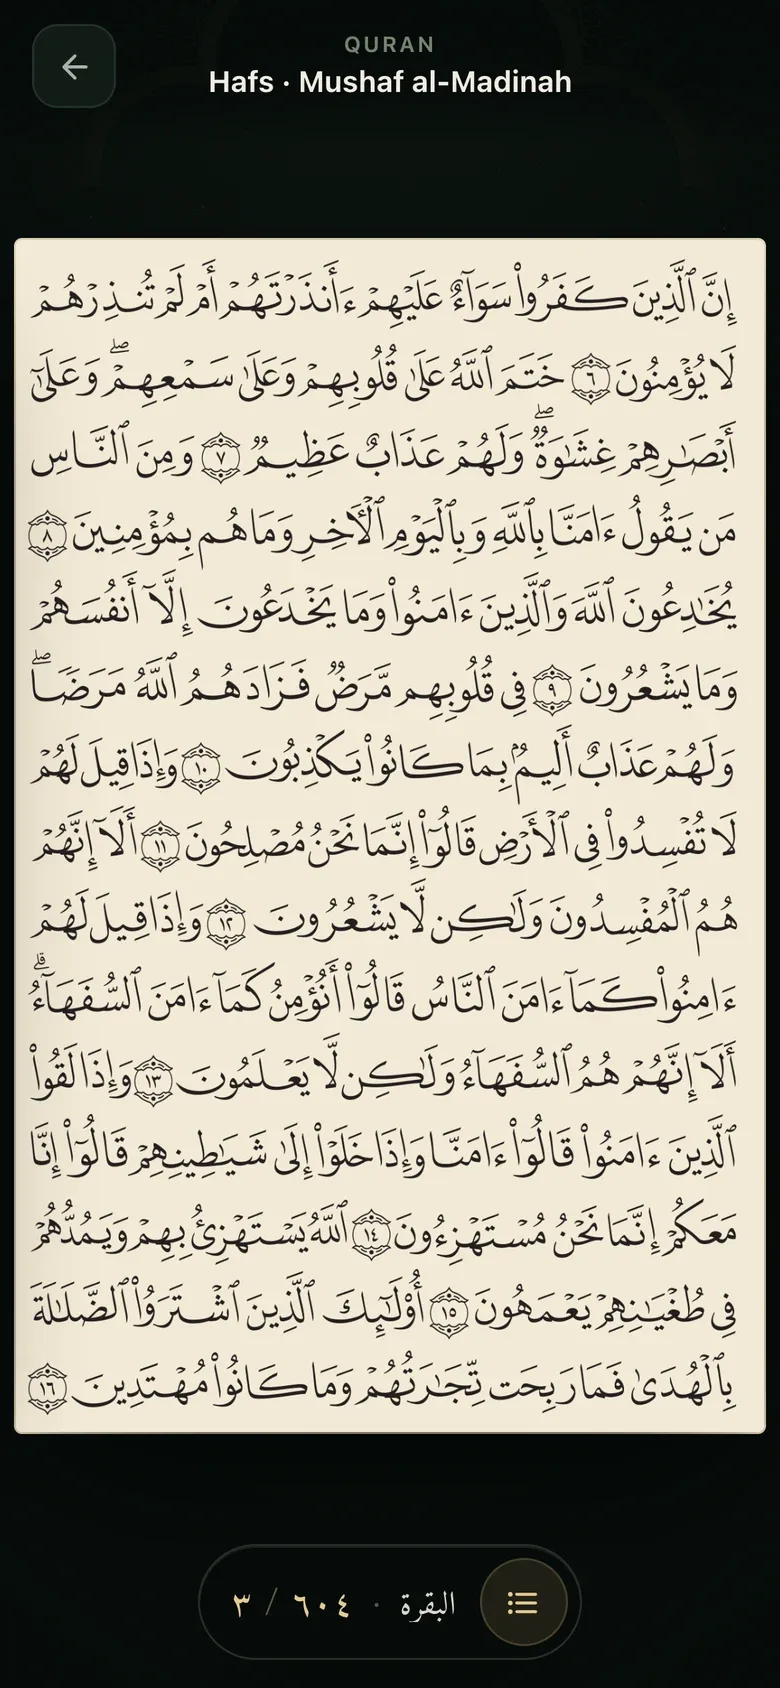 QURAN
Hafs · Mushaf al-Madinah
إِنَّ ٱلَّذِينَ كَفَرُوا۟ سَوَآءٌ عَلَيْهِمْ ءَأَنذَرْتَهُمْ أَمْ لَمْ تُنذِرْهُمْ
لَا يُؤْمِنُونَ ٦ خَتَمَ ٱللَّهُ عَلَىٰ قُلُوبِهِمْ وَعَلَىٰ سَمْعِهِمْ ۖ وَعَلَىٰٓ
أَبْصَـٰرِهِمْ غِشَـٰوَةٌ ۖ وَلَهُمْ عَذَابٌ عَظِيمٌ ٧ وَمِنَ ٱلنَّاسِ
مَن يَقُولُ ءَامَنَّا بِٱللَّهِ وَبِٱلْيَوْمِ ٱلْـَٔاخِرِ وَمَا هُم بِمُؤْمِنِينَ ٨
يُخَـٰدِعُونَ ٱللَّهَ وَٱلَّذِينَ ءَامَنُوا۟ وَمَا يَخْدَعُونَ إِلَّآ أَنفُسَهُمْ
وَمَا يَشْعُرُونَ ٩ فِى قُلُوبِهِم مَّرَضٌ فَزَادَهُمُ ٱللَّهُ مَرَضًا ۖ
وَلَهُمْ عَذَابٌ أَلِيمٌۢ بِمَا كَانُوا۟ يَكْذِبُونَ ١٠ وَإِذَا قِيلَ لَهُمْ
لَا تُفْسِدُوا۟ فِى ٱلْأَرْضِ قَالُوٓا۟ إِنَّمَا نَحْنُ مُصْلِحُونَ ١١ أَلَآ إِنَّهُمْ
هُمُ ٱلْمُفْسِدُونَ وَلَـٰكِن لَّا يَشْعُرُونَ ١٢ وَإِذَا قِيلَ لَهُمْ
ءَامِنُوا۟ كَمَآ ءَامَنَ ٱلنَّاسُ قَالُوٓا۟ أَنُؤْمِنُ كَمَآ ءَامَنَ ٱلسُّفَهَآءُ ۗ
أَلَآ إِنَّهُمْ هُمُ ٱلسُّفَهَآءُ وَلَـٰكِن لَّا يَعْلَمُونَ ١٣ وَإِذَا لَقُوا۟
ٱلَّذِينَ ءَامَنُوا۟ قَالُوٓا۟ ءَامَنَّا وَإِذَا خَلَوْا۟ إِلَىٰ شَيَـٰطِينِهِمْ قَالُوٓا۟ إِنَّا
مَعَكُمْ إِنَّمَا نَحْنُ مُسْتَهْزِءُونَ ١٤ ٱللَّهُ يَسْتَهْزِئُ بِهِمْ وَيَمُدُّهُمْ
فِى طُغْيَـٰنِهِمْ يَعْمَهُونَ ١٥ أُو۟لَـٰٓئِكَ ٱلَّذِينَ ٱشْتَرَوُا۟ ٱلضَّلَـٰلَةَ
بِٱلْهُدَىٰ فَمَا رَبِحَت تِّجَـٰرَتُهُمْ وَمَا كَانُوا۟ مُهْتَدِينَ ١٦
البقرة · ٦٠٤ / ٣